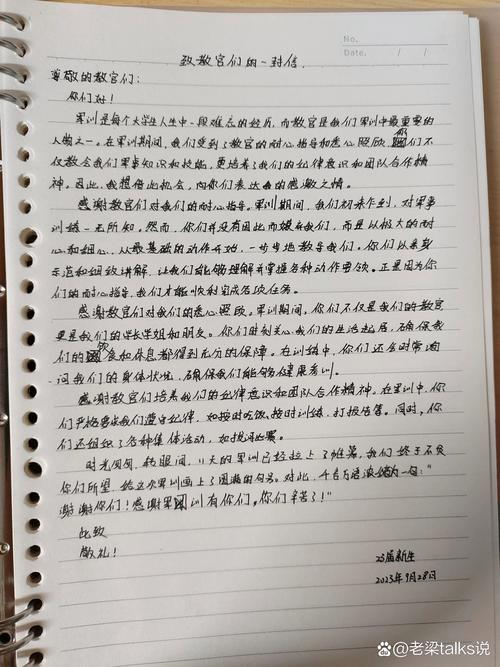 No.
Date. / /
致教官们的一封信.
尊敬的教官们：
你们好！
军训是每个大学生人生中一段难忘的经历，而教官是我们军训中最重要的
人物之一。在军训期间，我们受到了教官的耐心指导和悉心照顾，你们不
仅教会我们军事知识和技能，更培养了我们的纪律意识和团队合作精
神。因此，我想借此机会，向你们表达我的感激之情。
感激教官们对我们的耐心指导。军训期间，我们初来乍到，对军事
训练一无所知。然而，你们并没有因此而嫌弃我们，而是以极大的耐
心和细心，从最基础的动作开始，一步步地教导我们。你们以亲身
示范和细致讲解，让我们能够理解并掌握各种动作要领。正是因为你
们的耐心指导，我们才能顺利完成各项任务。
感激教官们对我们的悉心照顾。军训期间，你们不仅是我们的教官
更是我们的学长学姐和朋友。你们时刻关心我们的生活起居，确保我
们的饮食和休息都得到充分的保障。在训练中，你们还会时常询
问我们的身体状况，确保我们能够健康参训。
感谢教官们培养我们的纪律意识和团队合作精神。在军训中，你
们严格要求我们遵守纪律，如按时吃饭，按时训练，打报告等。同时，你
们还组织了各种集体活动，如拔河比赛。
时光匆匆，转眼间，11天的军训已经拉上了帷幕，我们终于不负
你们所望，给这次军训画上了圆满的句号。对此，千言万语浓缩为一句：“
谢谢你们！感谢军训有你们，你们辛苦了！”
此致
敬礼！
23届新生
2023年9月28日
百家号/老梁talks说